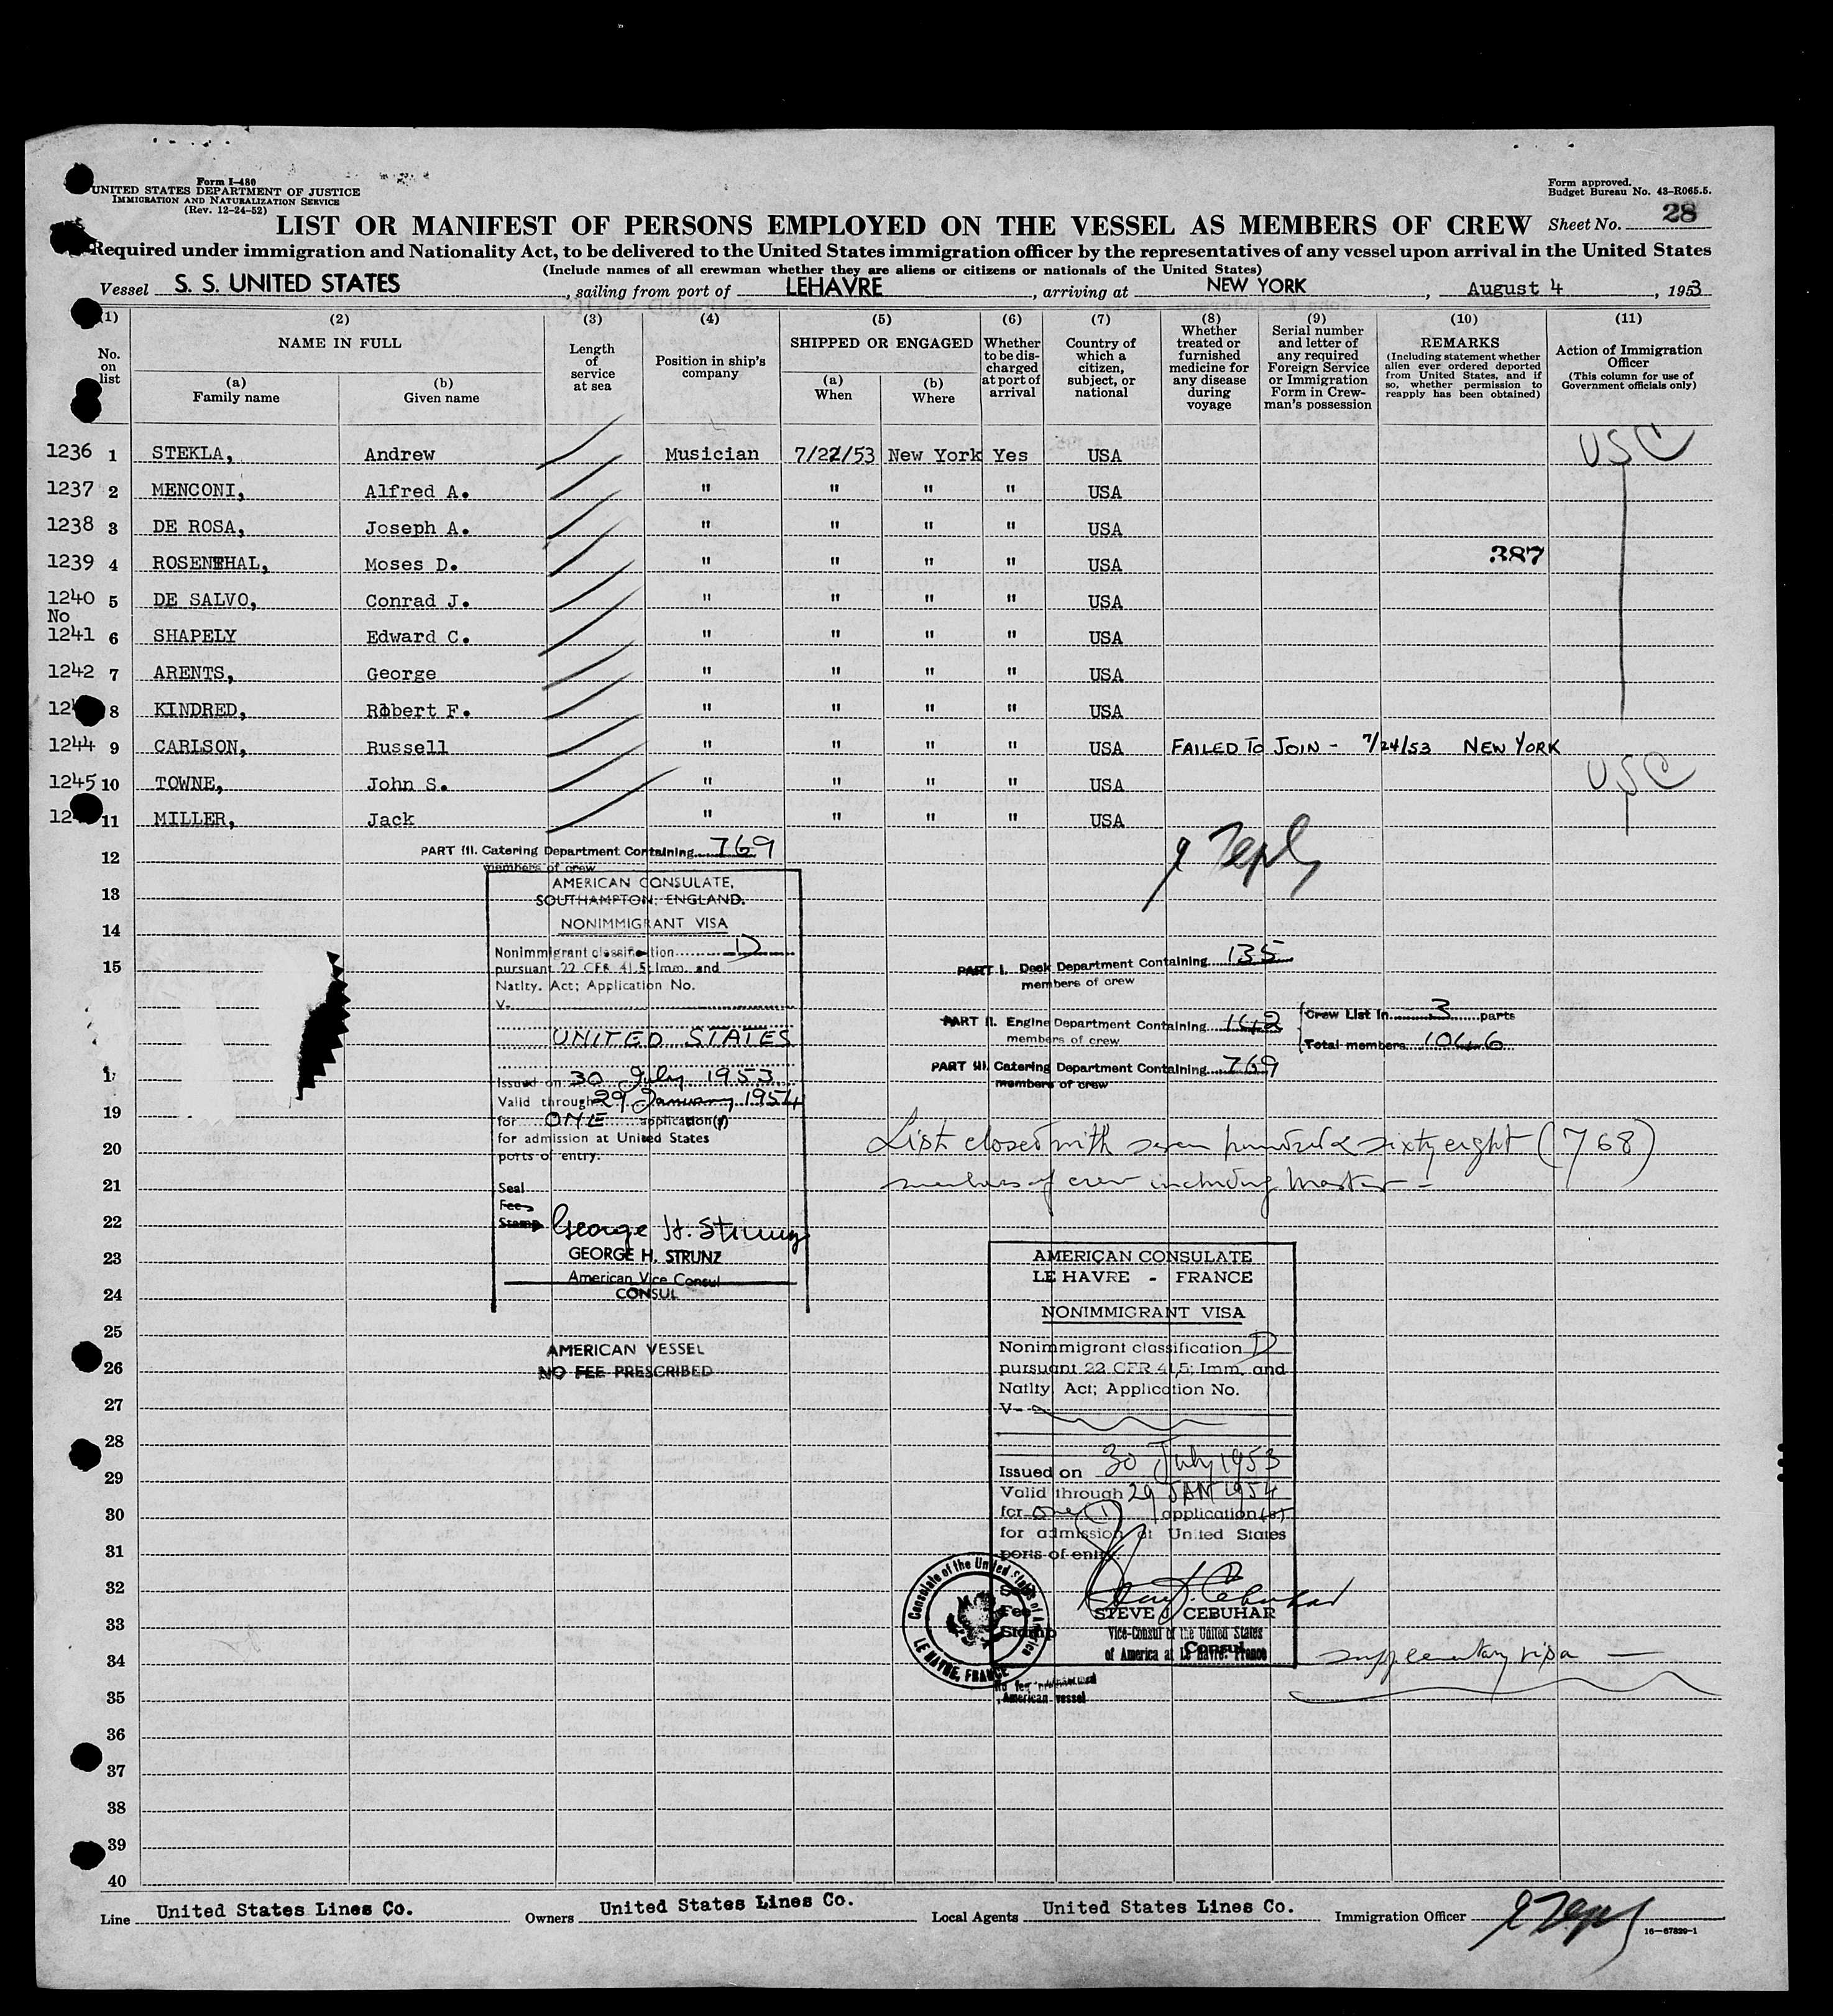 Form I-480
UNITED STATES DEPARTMENT OF JUSTICE
IMMIGRATION AND NATURALIZATION SERVICE
(Rev. 12-24-52)
Form approved.
Budget Bureau No. 43-R065.5.
LIST OR MANIFEST OF PERSONS EMPLOYED ON THE VESSEL AS MEMBERS OF CREW Sheet No. 28
Required under immigration and Nationality Act, to be delivered to the United States immigration officer by the representatives of any vessel upon arrival in the United States
(Include names of all crewman whether they are aliens or citizens or nationals of the United States)
Vessel S. S. UNITED STATES, sailing from port of LEHAVRE, arriving at NEW YORK, August 4, 1953
(1) No. on list
(2) NAME IN FULL
(a) Family name
(b) Given name
(3) Length of service at sea
(4) Position in ship's company
(5) SHIPPED OR ENGAGED
(a) When
(b) Where
(6) Whether to be discharged at port of arrival
(7) Country of which a citizen, subject, or national
(8) Whether treated or furnished medicine for any disease during voyage
(9) Serial number and letter of any required Foreign Service or Immigration Form in Crewman's possession
(10) REMARKS (Including statement whether alien ever ordered deported from United States, and if so, whether permission to reapply has been obtained)
(11) Action of Immigration Officer (This column for use of Government officials only)
1236 1 STEKLA, Andrew Musician 7/22/53 New York Yes USA USC
1237 2 MENCONI, Alfred A. " " " " USA
1238 3 DE ROSA, Joseph A. " " " " USA
1239 4 ROSENTHAL, Moses D. " " " " USA 387
1240 5 DE SALVO, Conrad J. " " " " USA
No
1241 6 SHAPELY Edward C. " " " " USA
1242 7 ARENTS, George " " " " USA
12 8 KINDRED, Robert F. " " " " USA
1244 9 CARLSON, Russell " " " " USA FAILED TO JOIN - 7/24/53 NEW YORK
1245 10 TOWNE, John S. " " " " USA USC
12 11 MILLER, Jack " " " " USA
12
PART III. Catering Department Containing 769
members of crew
13
14
15
AMERICAN CONSULATE,
SOUTHAMPTON, ENGLAND.
NONIMMIGRANT VISA
Nonimmigrant classification D
pursuant 22 CFR 41.5; Imm. and
Natlty. Act; Application No.
V-
UNITED STATES
Issued on 30 July 1953
Valid through 29 January 1954
for ONE application(s)
for admission at United States
ports of entry.
Seal
Fee
Stamp
George H. Strunz
GEORGE H. STRUNZ
American Vice Consul
CONSUL
AMERICAN VESSEL
NO FEE PRESCRIBED
PART I. Deck Department Containing 135
members of crew
PART II. Engine Department Containing 142
members of crew
Crew List in 3 parts
Total members 1046
PART III. Catering Department Containing 769
members of crew
List closed with seven hundred & sixty eight (768)
members of crew including Master -
17
19
20
21
22
23
24
25
26
27
28
29
30
31
32
33
34
35
36
37
38
39
40
AMERICAN CONSULATE
LE HAVRE - FRANCE
NONIMMIGRANT VISA
Nonimmigrant classification D
pursuant 22 CFR 41.5; Imm. and
Natlty. Act; Application No.
V-
Issued on 30 July 1953
Valid through 29 JAN 1954
for one (1) application(s)
for admission at United States
ports of entry.
Seal
Fee
Stamp
STEVE J CEBUHAR
Vice-Consul of the United States
of America at Le Havre, France
Consul
Consulate of the United States of America
LE HAVRE, FRANCE
No fee prescribed
American vessel
supplementary visa —
Line United States Lines Co. Owners United States Lines Co. Local Agents United States Lines Co. Immigration Officer
16-67829-1